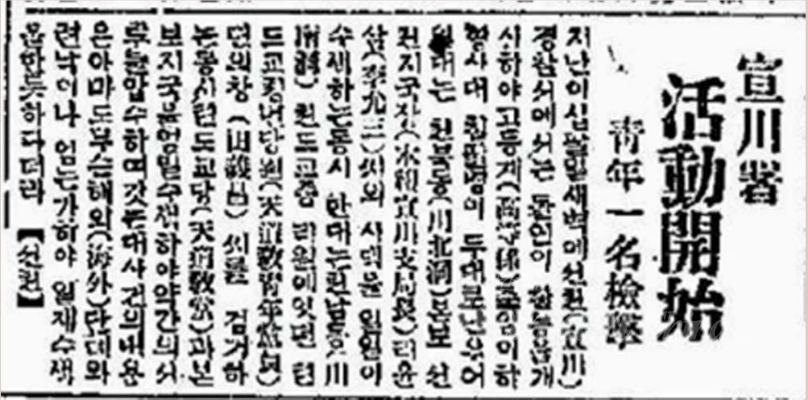 宣川署
活動開始
靑年一名檢擧
지난이십팔일새벽에선천(宣川)
경찰서에서는 돌연이 활동을개
시하야고등계(高等係)주임이하
형사대 칠팔명이 두대로난우어
일대는 천북동(川北洞)본보 선
천지국장(本報宣川支局長)리윤
삼 씨의 사택을 일일이
수색하는동시 한대는천남동(川
南洞) 천도교종리원에잇던 텬
도교청년당원(天道敎靑年黨員)
씨를 검거하
는동시텬도교당(天道敎堂)과본
보지국을엄밀수색하야약간의서
류를압수하며갓는대사건의내용
은아마도무슨해외(海外)단톄와
련낙이나 잇는가하야 일재수색
을한듯하다더라【선천】